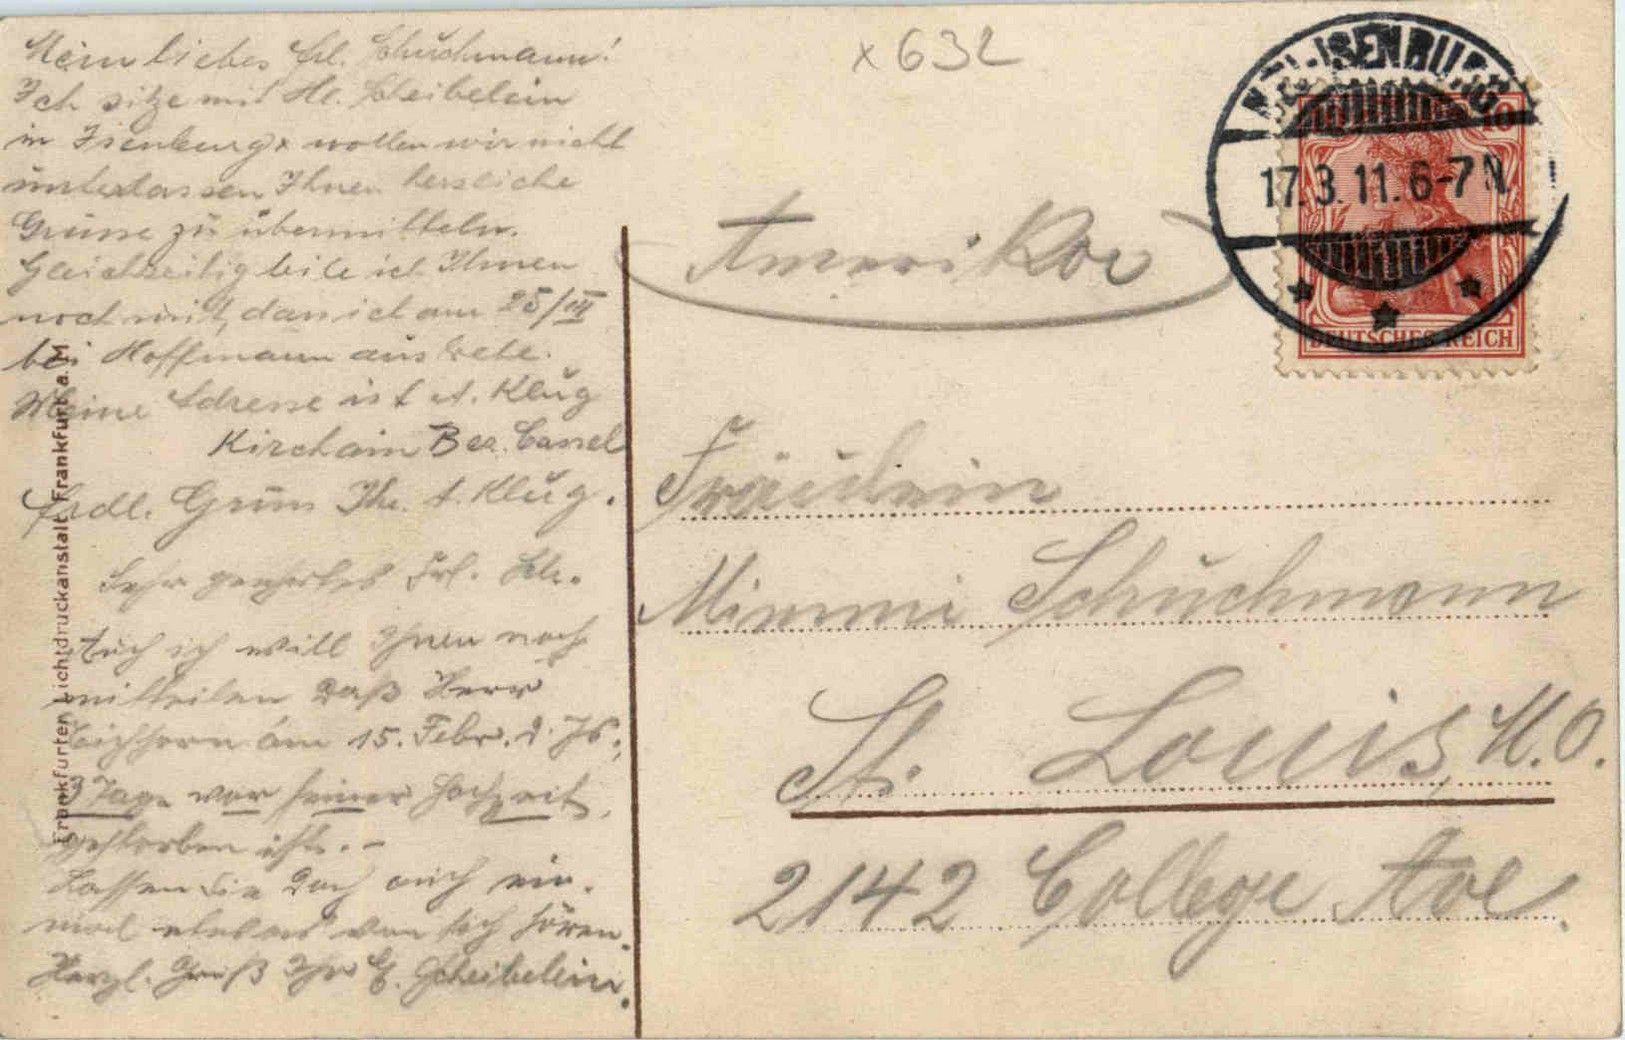 Mein liebes Frl. Schuchmann!
Ich sitze mit Hr. Scheibelein
in Isenburg & wollen wir nicht
unterlassen Ihnen herzliche
Grüsse zu übermitteln.
Gleichzeitig teile ich Ihnen
noch mit, dass ich am 25/III
bei Hoffmann austrete.
Meine Adresse ist A. Klug
Kirchain Bez. Cassel
frdl. Gruss Ihr A. Klug.
Sehr geehrtes Frl. Sch.
Auch ich will Ihnen noch
mitteilen daß Herr
Eichhorn am 15. Febr. d. Js.,
3 Tage vor seiner Hochzeit,
gestorben ist. -
Lassen Sie doch auch ein-
mal etwas von sich hören.
Herzl. Gruß Ihr G. Scheibelein.
Frankfurter Lichtdruckanstalt Frankfurt a. M.
x 632
N.-ISENBURG
17.3.11.6-7 N.
10
DEUTSCHES REICH
Amerika
Fräulein
Minmi Schuchmann
St. Louis, M.O.
2142 College Ave.